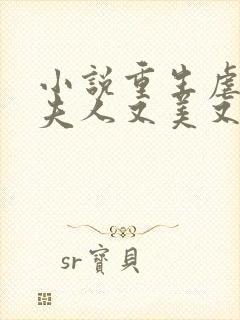 小說重生虐
夫人又美又
sr寶貝